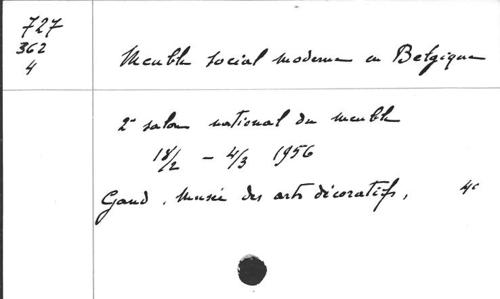 727
362
4
Meuble social moderne en Belgique
2e salon national du meuble
18/2 - 4/3 1956
Gand, Musée des arts décoratifs, 4°